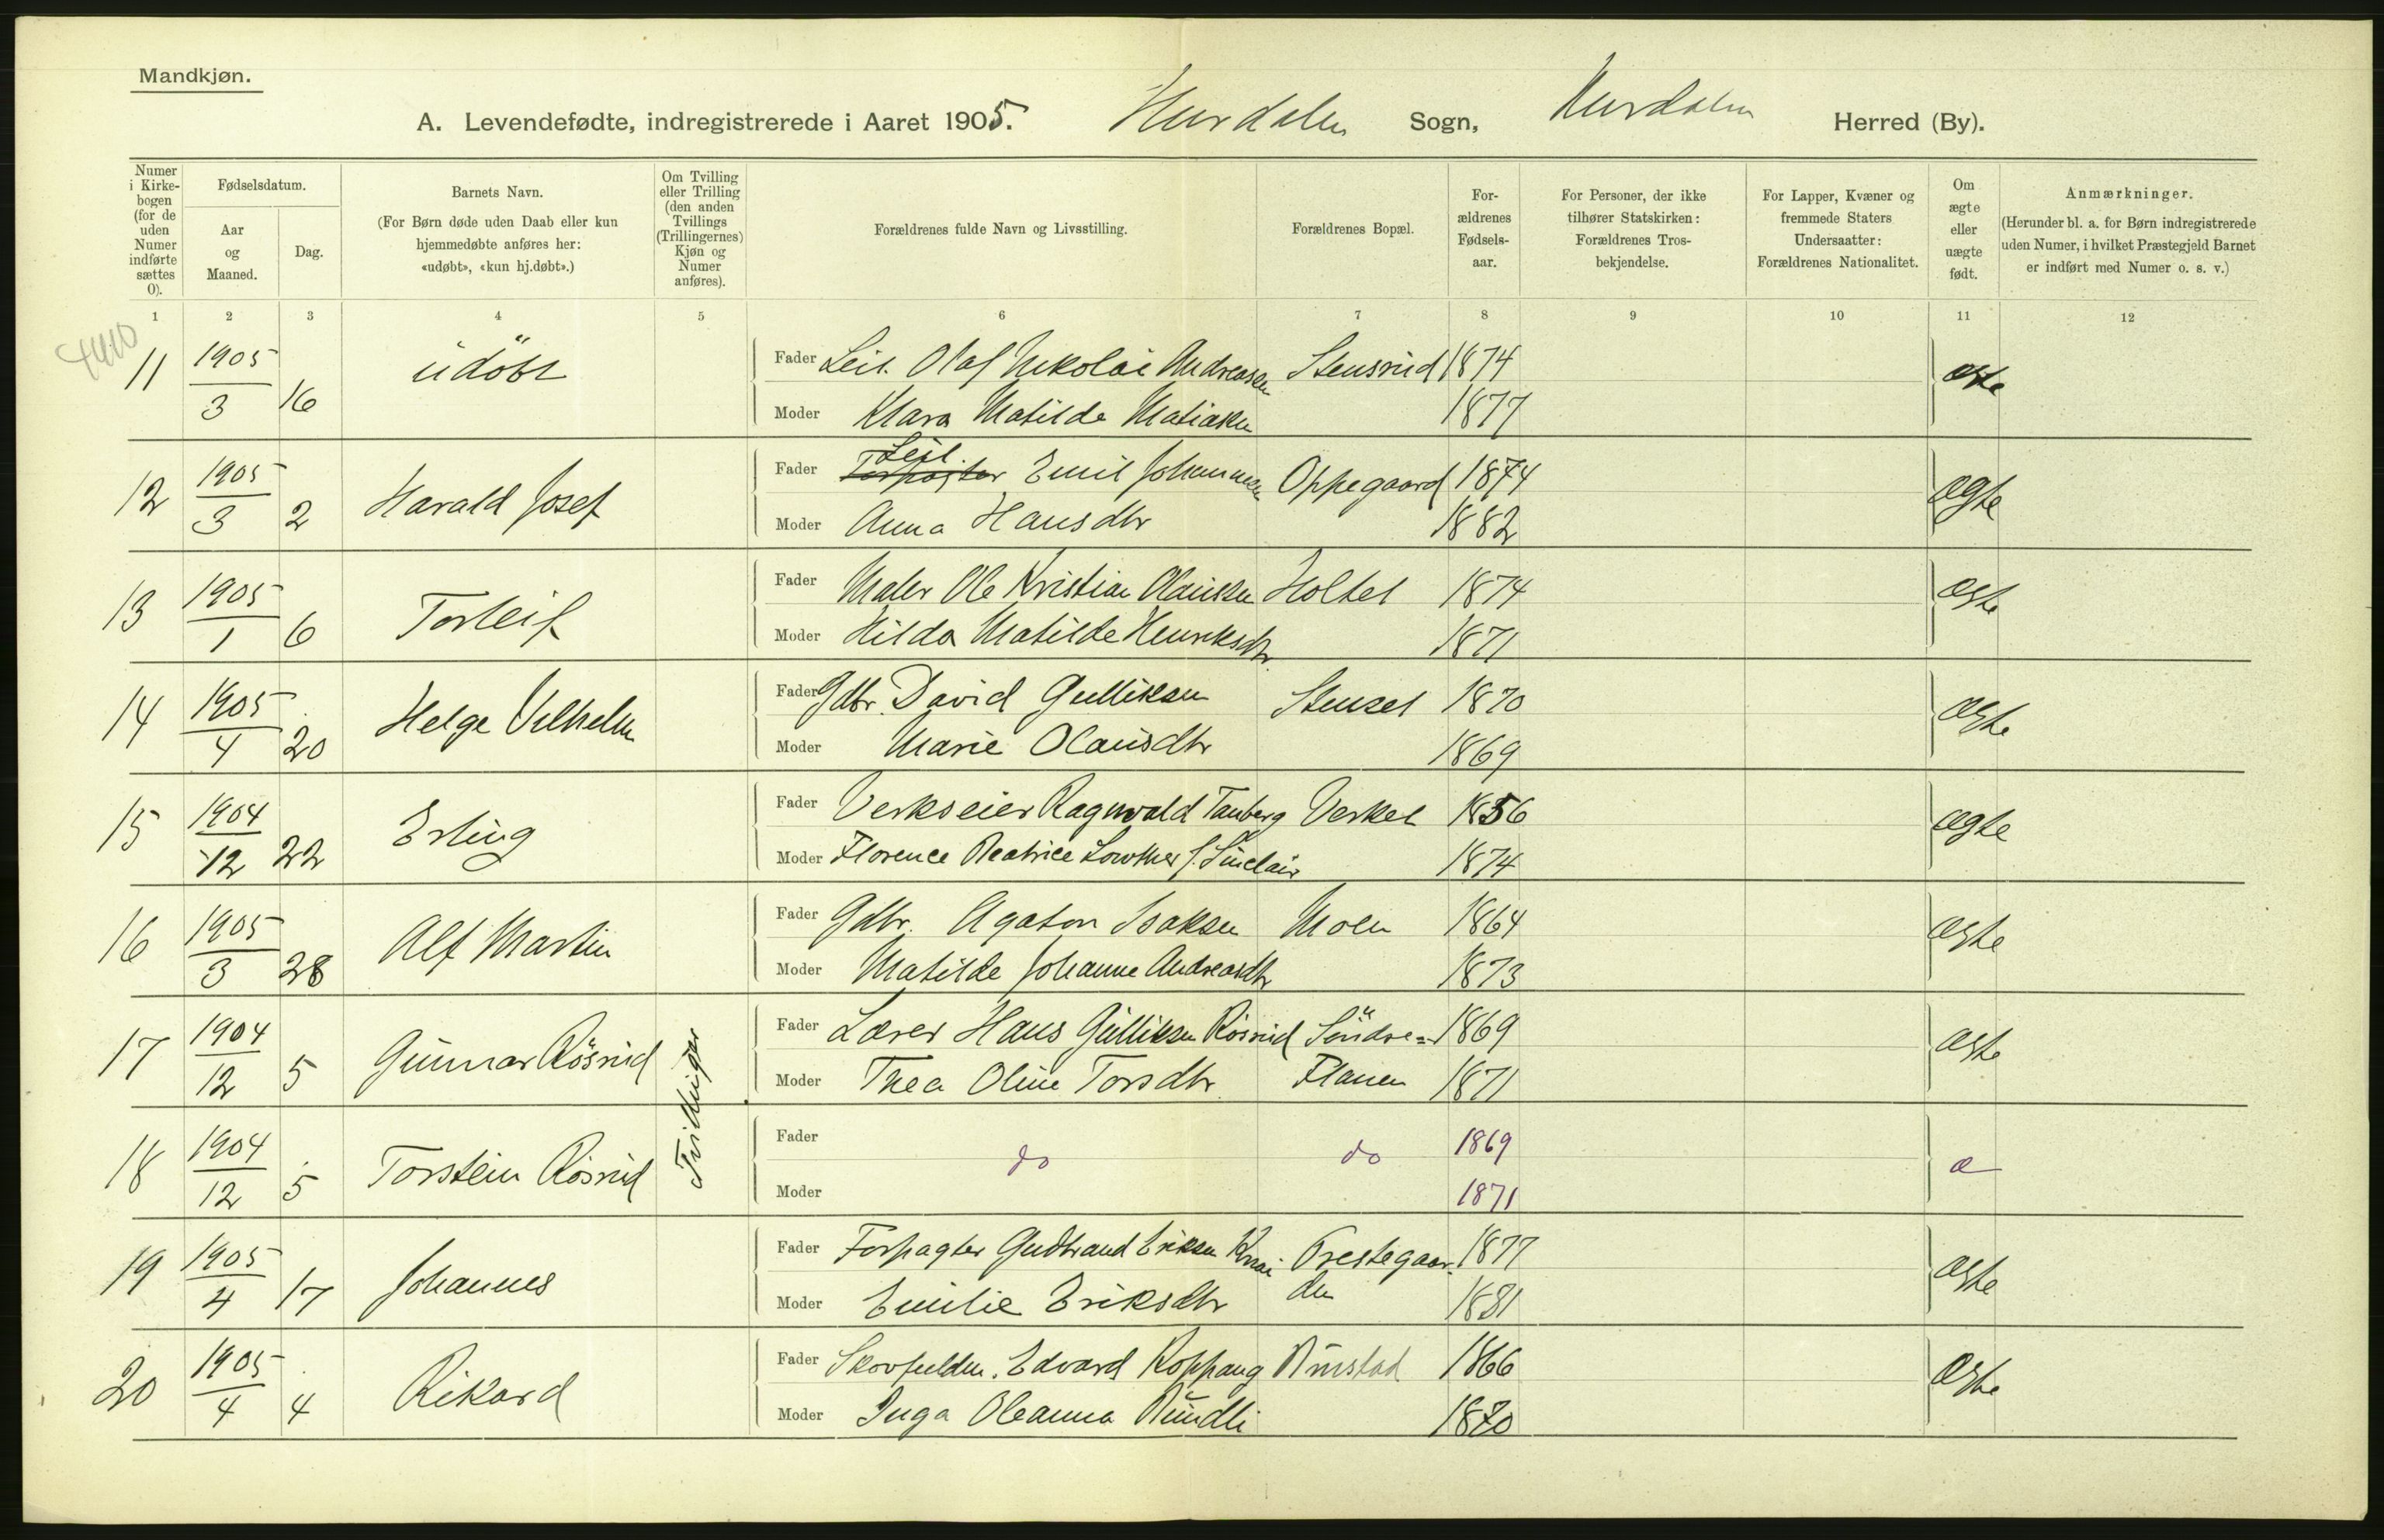 Mandkjøn.
A. Levendefødte, indregistrerede i Aaret 1905. Hurdalen Sogn, Hurdalen Herred (By).
Numer i Kirkebogen (for de uden Numer indførte sættes 0).
Fødselsdatum.
Aar og Maaned.
Dag.
Barnets Navn.
(For Børn døde uden Daab eller kun hjemmedøbte anføres her: «udøbt», «kun hj.døbt».)
Om Tvilling eller Trilling (den anden Tvillings (Trillingernes) Kjøn og Numer anføres).
Forældrenes fulde Navn og Livsstilling.
Forældrenes Bopæl.
Forældrenes Fødselsaar.
For Personer, der ikke tilhører Statskirken: Forældrenes Trosbekjendelse.
For Lapper, Kvæner og fremmede Staters Undersaatter: Forældrenes Nationalitet.
Om ægte eller uægte født.
Anmærkninger.
(Herunder bl. a. for Børn indregistrerede uden Numer, i hvilket Præstegjeld Barnet er indført med Numer o. s. v.)
1 2 3 4 5 6 7 8 9 10 11 12
11 1905/3 16 udöbt Fader Leil. Olaf Nikolai Andreasen Stensrud 1874 ægte
Moder Klara Matilde Matiasen 1877
12 1905/3 2 Harald Josef Fader Leil. Forpagter Emil Johannesen Oppegaard 1874 ægte
Moder Anna Hansdtr 1882
13 1905/1 6 Torleif Fader Maler Ole Kristian Olausen Holtet 1874 ægte
Moder Hilda Matilde Henriksdtr. 1871
14 1905/4 20 Helge Vilhelm Fader Gdbr. David Gulliksen Stenset 1870 ægte
Moder Marie Olausdtr 1869
15 1904/12 22 Erling Fader Verkseier Ragnvald Tauberg Verket 1856 ægte
Moder Florence Beatrice Lowther f. Sinclair 1874
16 1905/3 28 Alf Martin Fader Gdbr. Agaton Isaksen Moen 1864 ægte
Moder Matilde Johanne Andreasdtr 1873
17 1904/12 5 Gunnar Rösrud Tvillinger Fader Lærer Hans Gulliksen Rösrud Söndre= 1869 ægte
Moder Thea Oline Torsdtr. Flaen 1871
18 1904/12 5 Torstein Rösrud Fader do do 1869 æ
Moder 1871
19 1905/4 17 Johannes Fader Forpagter Gudbrand Eriksen Knai Prestegaar- 1877 ægte
Moder Emilie Eriksdtr den 1881
20 1905/4 4 Rikard Fader Edvard Koppang Rustad 1866 ægte
Moder Inga Oleanna Rundli 1870